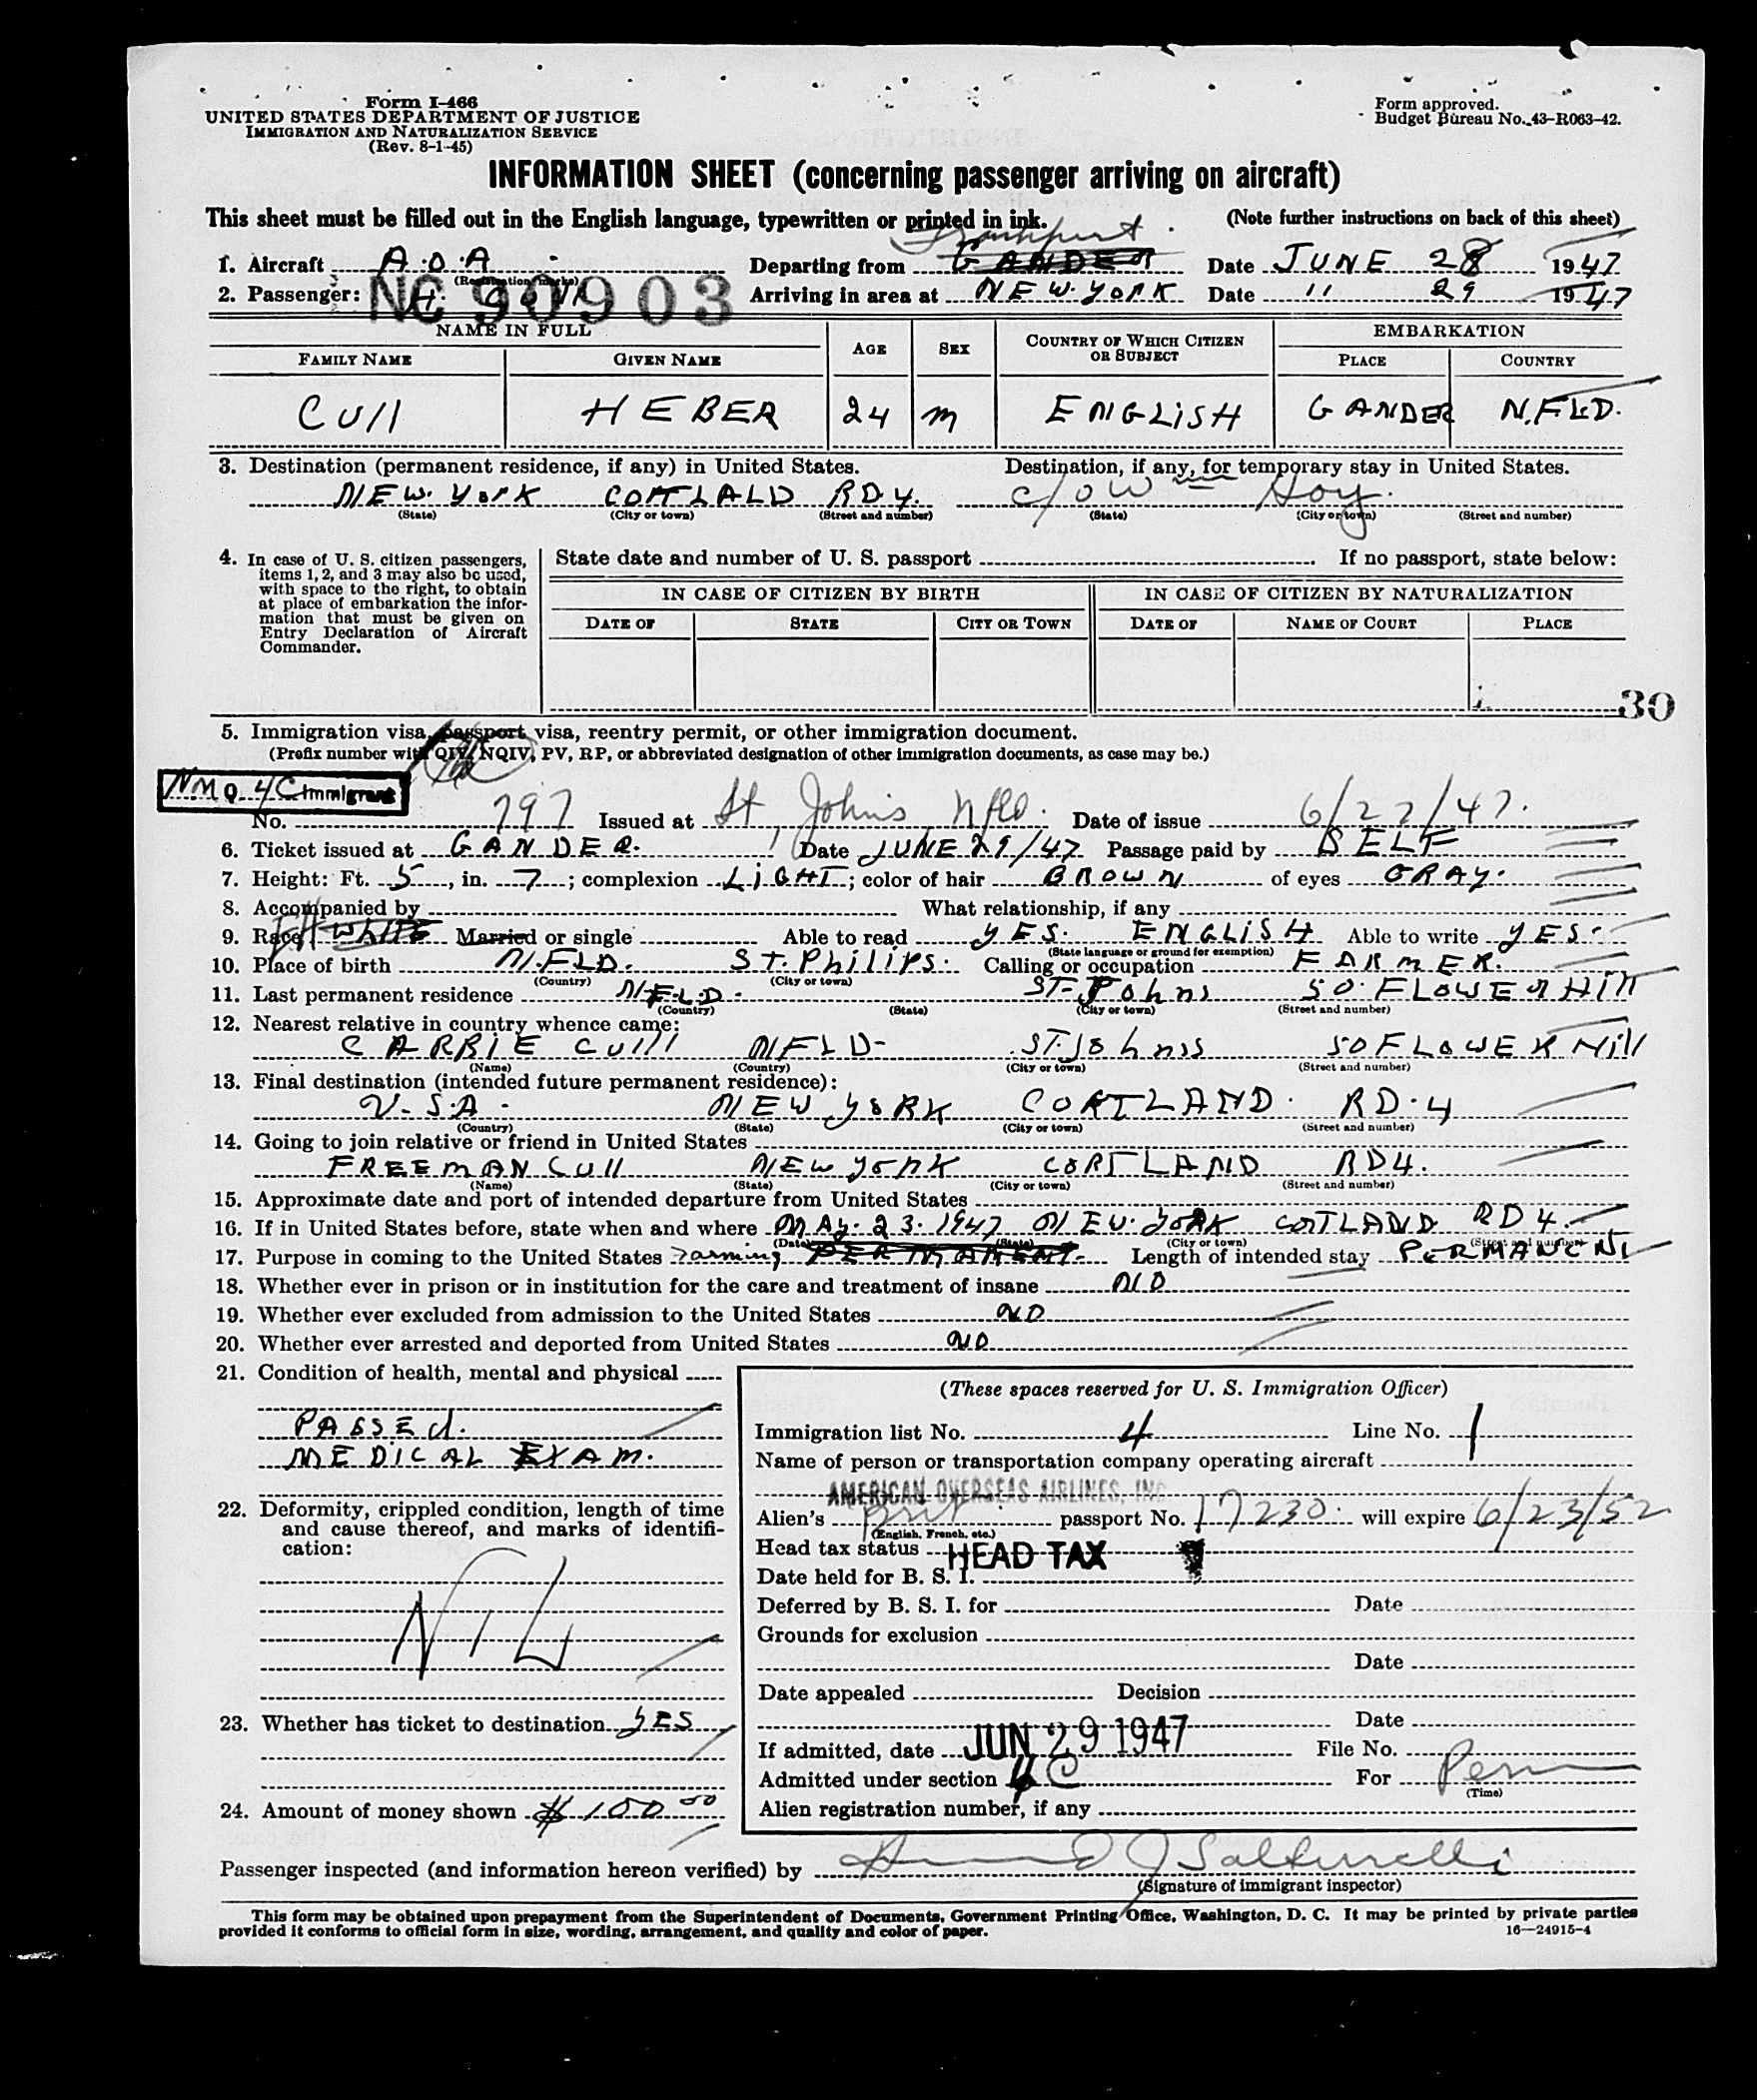 Form I-466
UNITED STATES DEPARTMENT OF JUSTICE
IMMIGRATION AND NATURALIZATION SERVICE
(Rev. 8-1-45)
Form approved.
Budget Bureau No. 43-R063-42.
INFORMATION SHEET (concerning passenger arriving on aircraft)
This sheet must be filled out in the English language, typewritten or printed in ink. (Note further instructions on back of this sheet)
Frankfurt
1. Aircraft A.O.A. Departing from GANDER Date JUNE 28 1947
(Registration marks)
2. Passenger: NC 90903 Arriving in area at NEW.YORK Date " 29 1947
NAME IN FULL
FAMILY NAME GIVEN NAME AGE SEX COUNTRY OF WHICH CITIZEN OR SUBJECT EMBARKATION PLACE COUNTRY
CUll HEBER 24 M ENGLISH GANDER N.FLD.
3. Destination (permanent residence, if any) in United States. Destination, if any, for temporary stay in United States.
NEW.YorK CORTLALD RD4. c/o Wm Hoy.
(State) (City or town) (Street and number) (State) (City or town) (Street and number)
4. In case of U. S. citizen passengers, items 1, 2, and 3 may also be used, with space to the right, to obtain at place of embarkation the information that must be given on Entry Declaration of Aircraft Commander.
State date and number of U. S. passport If no passport, state below:
IN CASE OF CITIZEN BY BIRTH IN CASE OF CITIZEN BY NATURALIZATION
DATE OF STATE CITY OR TOWN DATE OF NAME OF COURT PLACE
30
5. Immigration visa, passport visa, reentry permit, or other immigration document.
(Prefix number with QIV, NQIV, PV, RP, or abbreviated designation of other immigration documents, as case may be.)
4C Immigrant
No. 797 Issued at St Johns Nfld. Date of issue 6/27/47.
6. Ticket issued at GANDER. Date JUNE 29/47 Passage paid by SELF
7. Height: Ft. 5, in. 7; complexion LIGHT; color of hair BROWN of eyes GRAY.
8. Accompanied by What relationship, if any
9. Race WHITE Married or single Able to read YES. ENGLISH Able to write YES.
(State language or ground for exemption)
10. Place of birth N.FLD. ST.PhiliPS. Calling or occupation FARMER.
(Country) (City or town)
11. Last permanent residence NFLD. ST-Johns 50.FLOWER Hill
(Country) (State) (City or town) (Street and number)
12. Nearest relative in country whence came:
CARRIE CUlll NFLD- ST.Johnss 50 FLOWER Hill
(Name) (Country) (City or town) (Street and number)
13. Final destination (intended future permanent residence):
U.S.A. NEW YORK CORTLAND. RD.4
(Country) (State) (City or town) (Street and number)
14. Going to join relative or friend in United States
FREEMAN CUll NEW YORK CORTLAND RD4.
(Name) (State) (City or town) (Street and number)
15. Approximate date and port of intended departure from United States
16. If in United States before, state when and where MAy. 23. 1947 NEW.YORK CORTLAND RD4.
(Date) (State) (City or town) (Street and number)
17. Purpose in coming to the United States Farming PERMANENT. Length of intended stay PERMANENT
18. Whether ever in prison or in institution for the care and treatment of insane NO
19. Whether ever excluded from admission to the United States NO
20. Whether ever arrested and deported from United States NO
21. Condition of health, mental and physical
PASSEd.
MEDICAL EXAM.
22. Deformity, crippled condition, length of time and cause thereof, and marks of identification:
NIL
23. Whether has ticket to destination YES
24. Amount of money shown $100.00
(These spaces reserved for U. S. Immigration Officer)
Immigration list No. 4 Line No. 1
Name of person or transportation company operating aircraft
AMERICAN OVERSEAS AIRLINES, INC
Alien's Brit passport No. 17230 will expire 6/23/52
(English, French, etc.)
Head tax status HEAD TAX
Date held for B. S. I.
Deferred by B. S. I. for Date
Grounds for exclusion
Date
Date appealed Decision
Date
If admitted, date JUN 29 1947 File No.
Admitted under section 4C For Perm
(Time)
Alien registration number, if any
Passenger inspected (and information hereon verified) by
(Signature of immigrant inspector)
This form may be obtained upon prepayment from the Superintendent of Documents, Government Printing Office, Washington, D. C. It may be printed by private parties
provided it conforms to official form in size, wording, arrangement, and quality and color of paper. 16—24915-4